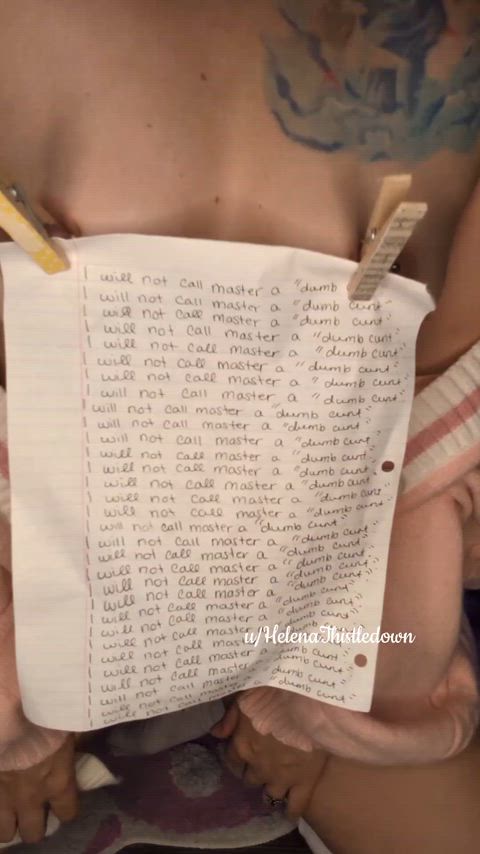 I will not call master a "dumb
I will not call master a "dumb cunt"
I will not call master a "dumb cunt"
I will not call master a "dumb cunt"
I will not call master a "dumb cunt"
I will not call master a "dumb cunt"
I will not call master a "dumb cunt"
I will not call master a "dumb cunt"
I will not call master a "dumb cunt"
I will not call master a "dumb cunt"
I will not call master a "dumb cunt"
I will not call master a "dumb cunt"
I will not call master a "dumb cunt"
I will not call master a "dumb cunt"
I will not call master a "dumb cunt"
I will not call master a "dumb cunt"
I will not call master a "dumb cunt"
I will not call master a "dumb cunt"
I will not call master a "dumb cunt"
I will not call master a "dumb cunt"
I will not call master a "dumb cunt"
I will not call master a "dumb cunt"
I will not call master a "dumb cunt"
I will not call master a "dumb cunt"
I will not call master a "dumb cunt"
I will not call master a "dumb cunt"
I will not call master a "dumb cunt"
I will not call master a "dumb cunt"
I will not call master a "dumb cunt"
I will not call master a "dumb cunt"
u/HelenaThistledown